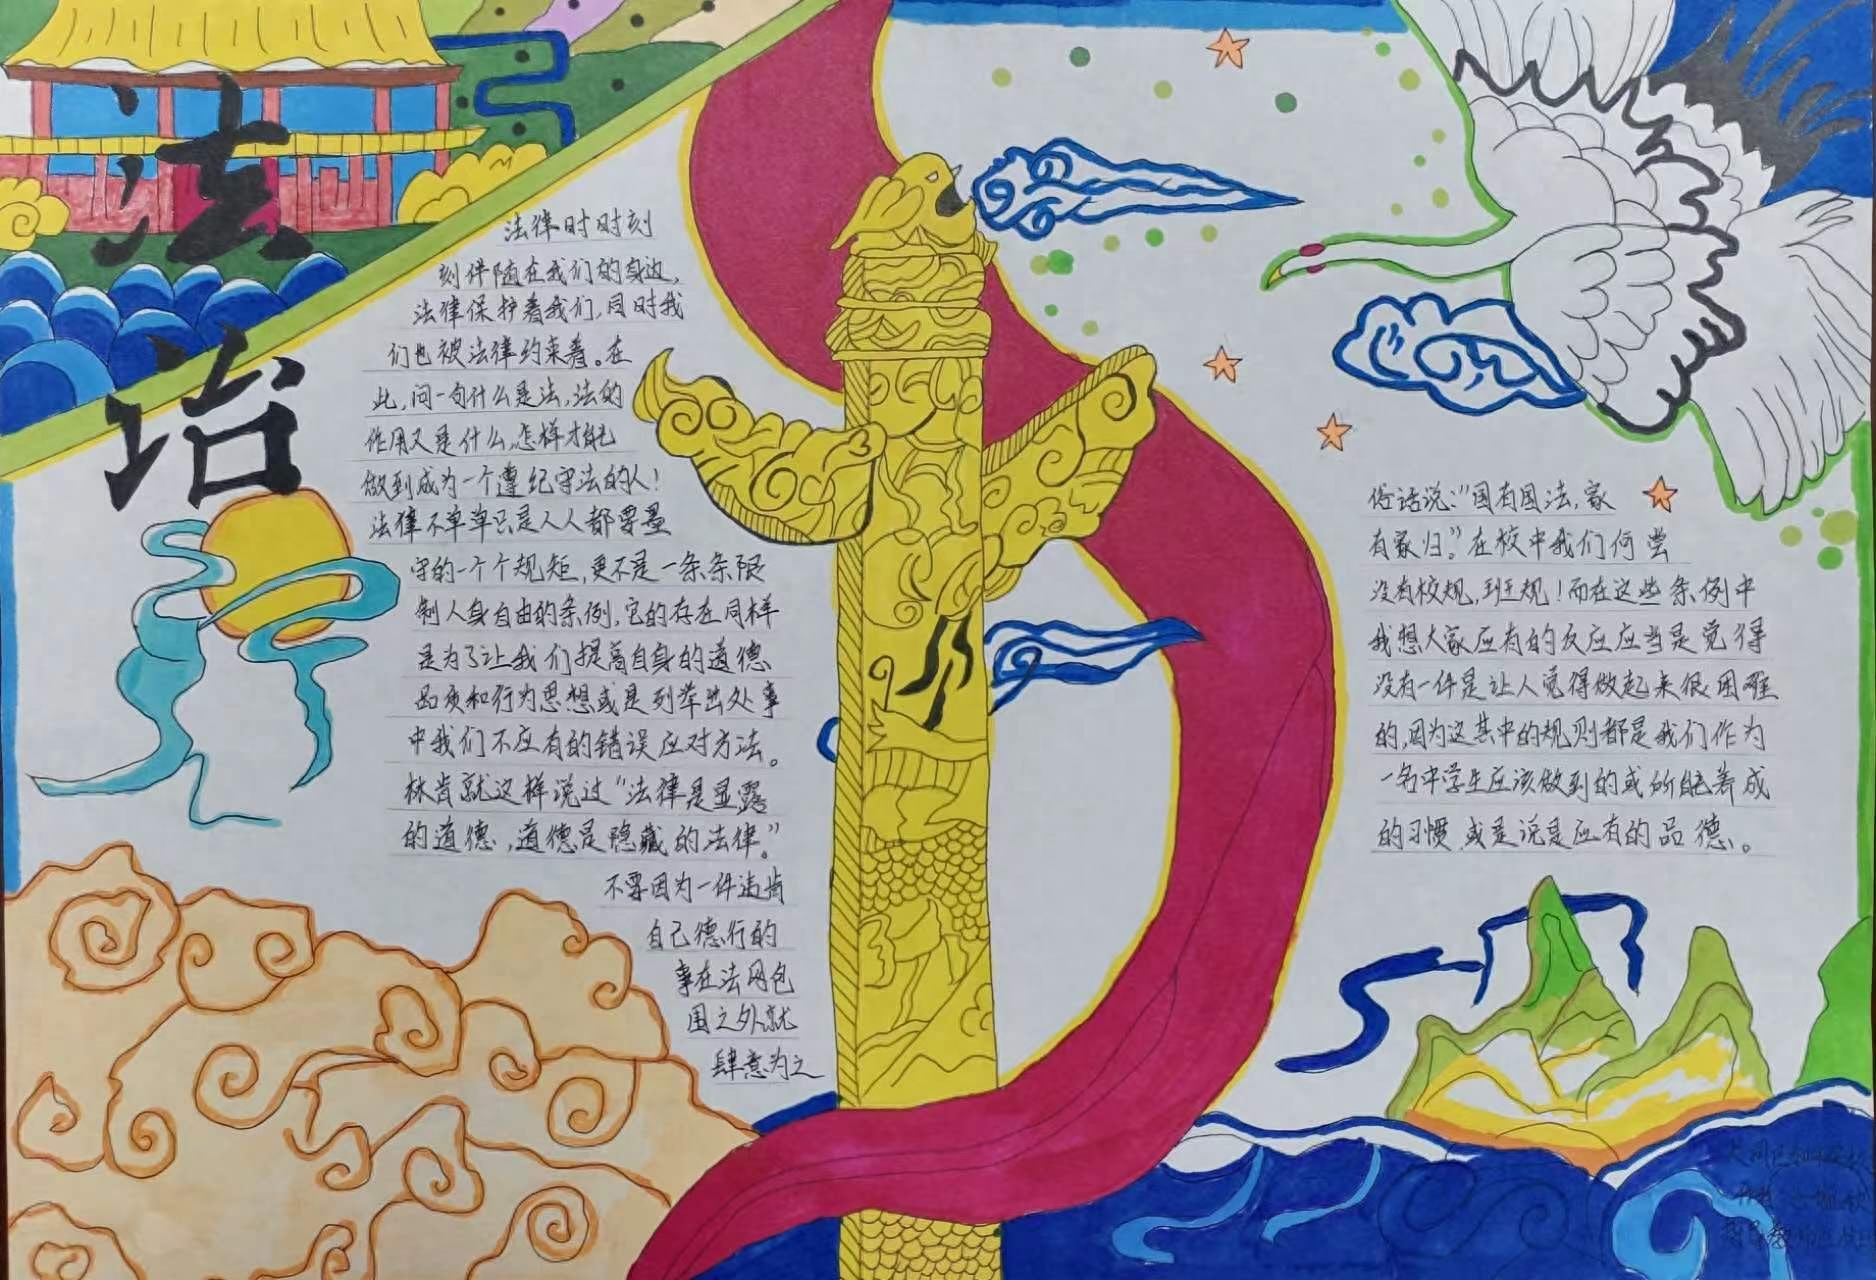 法治
法律时时刻
刻伴随在我们的身边,
法律保护着我们,同时我
们也被法律约束着。在
此,问一句什么是法,法的
作用又是什么,怎样才能
做到成为一个遵纪守法的人!
法律不单单只是人人都要墨
守的一个个规矩,更不是一条条限
制人身自由的条例,它的存在同样
是为了让我们提高自身的道德
品质和行为思想或是列举出处事
中我们不应有的错误应对方法。
林肯就这样说过“法律是显露
的道德,道德是隐藏的法律。”
不要因为一件违背
自己德行的
事在法网包
围之外就
肆意为之
俗话说:“国有国法,家
有家归。”在校中我们何尝
没有校规,班规!而在这些条例中
我想大家应有的反应应当是觉得
没有一件是让人觉得做起来很困难
的,因为这其中的规则都是我们作为
一名中学生应该做到的或所能养成
的习惯,或是说是应有的品德。